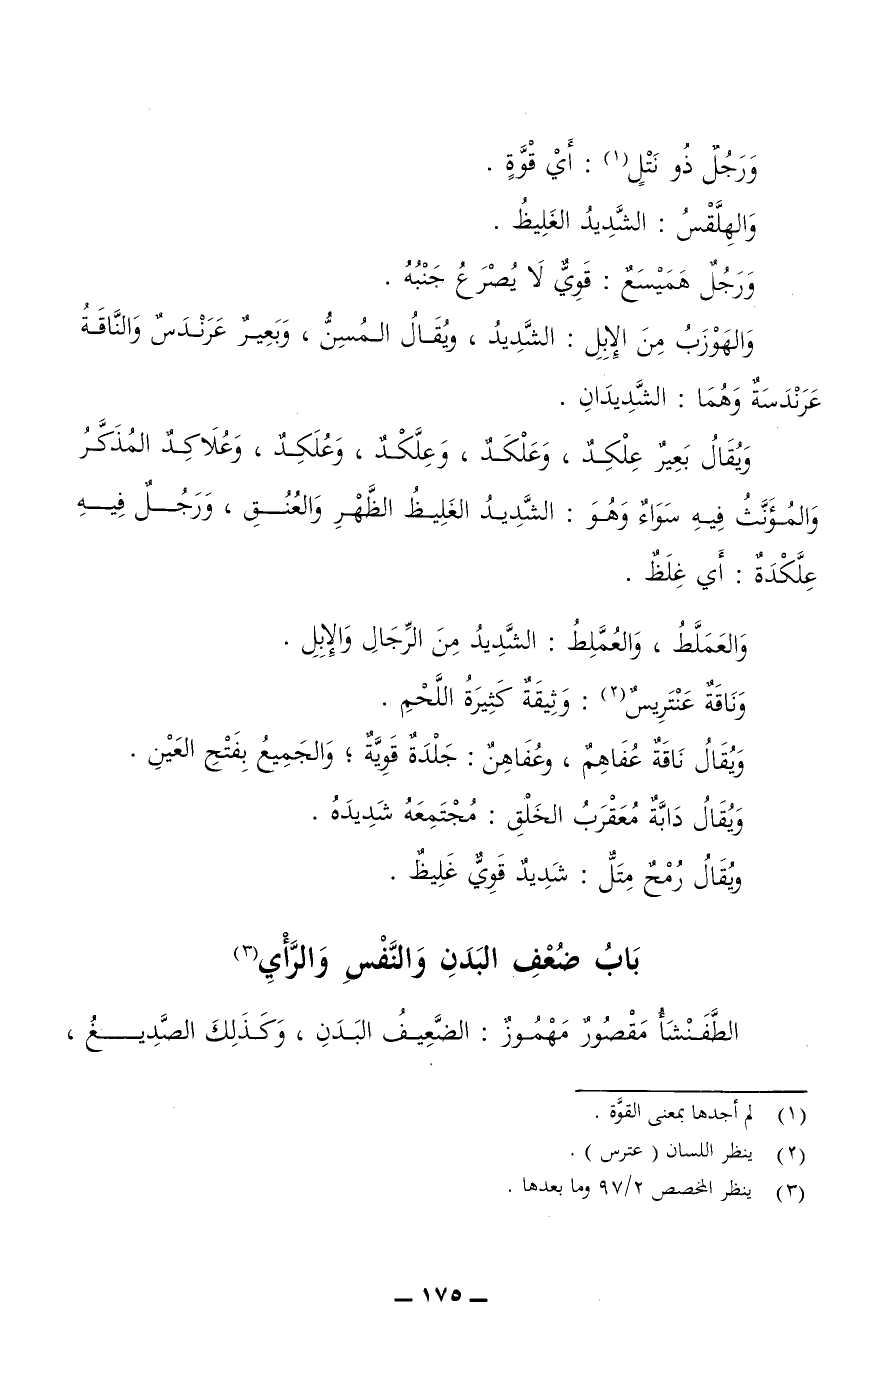 وَرَجُلٌ ذُو نَتْلٍ(١) : أَيْ قُوَّةٍ .
وَالهِلَّقْسُ : الشَّدِيدُ الغَلِيظُ .
وَرَجُلٌ هَمَيْسَعٌ : قَوِيٌّ لَا يُصْرَعُ جَنْبُهُ .
وَالهَوْزَبُ مِنَ الإِبِلِ : الشَّدِيدُ ، ويُقَالُ المُسِنُّ ، وَبَعِيرٌ عَرَنْدَسٌ وَالنَّاقَةُ
عَرَنْدَسَةٌ وَهُمَا : الشَّدِيدَانِ .
وَيُقَالُ بَعِيرٌ عِلْكِدٌ ، وَعَلْكَدٌ ، وَعِلَّكْدٌ ، وَعُلَكِدٌ ، وَعُلَاكِدٌ المُذَكَّرُ
وَالمُؤَنَّثُ فِيهِ سَوَاءٌ وَهُوَ : الشَّدِيدُ الغَلِيظُ الظَّهْرِ وَالعُنُقِ ، وَرَجُلٌ فِيهِ
عِلَّكْدَةٌ : أَي غِلَظٌ .
وَالعَمَلَّطُ ، وَالعُمَّلِطُ : الشَّدِيدُ مِنَ الرِّجَالِ وَالإِبِلِ .
وَنَاقَةٌ عَنْتَرِيسٌ(٢) : وَثِيقَةٌ كَثِيرَةُ اللَّحْمِ .
وَيُقَالُ نَاقَةٌ عُفَاهِمٌ ، وعُفَاهِنٌ : جَلْدَةٌ قَوِيَّةٌ ؛ وَالجَمِيعُ بِفَتْحِ العَيْنِ .
وَيُقَالُ دَابَّةٌ مُعَقْرَبُ الخَلْقِ : مُجْتَمِعَهُ شَدِيدَهُ .
ويُقَالُ رُمْحٌ مِتَلٌّ : شَدِيدٌ قَوِيٌّ غَلِيظٌ .
بَابُ ضُعْفِ البَدَنِ وَالنَّفْسِ وَالرَّأْيِ(٣)
الطَّفَنْشَأُ مَقْصُورٌ مَهْمُوزٌ : الضَّعِيفُ البَدَنِ ، وَكَذَلِكَ الصَّدِيغُ ،
(١) لم أجدها بمعنى القوَّة .
(٢) ينظر اللسان ( عترس ) .
(٣) ينظر المخصص ٩٧/٢ وما بعدها .
ـ ١٧٥ ـ